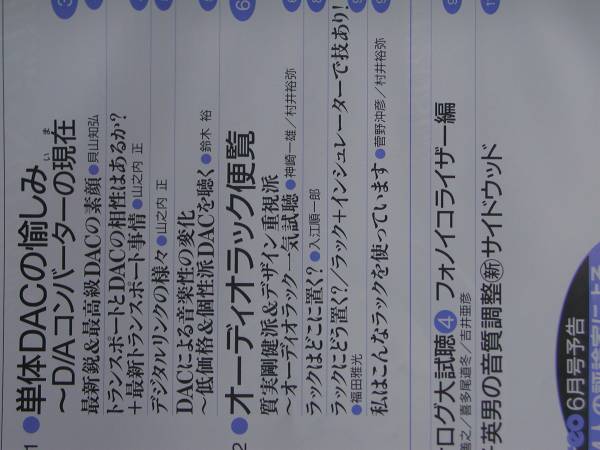 1
●単体DACの愉しみ
～D/Aコンバーターの現在
いま
最新鋭&最高級DACの素顔●貝山知弘
トランスポートとDACの相性はあるか?
＋最新トランスポート事情●山之内 正
デジタルリンクの様々●山之内 正
DACによる音楽性の変化
～低価格&個性派DACを聴く●鈴木 裕
2
●オーディオラック便覧
質実剛健派&デザイン重視派
～オーディオラック一気試聴●神崎一雄／村井裕弥
ラックはどこに置く?●入江順一郎
ラックにどう置く?／ラック＋インシュレーターで技あり!
●福田雅光
私はこんなラックを使っています●菅野沖彦／村井裕弥
ログ大試聴④ フォノイコライザー編
善之／喜多尾道冬／吉井亜彦
英男の音質調整㊟サイドウッド
6月号予告